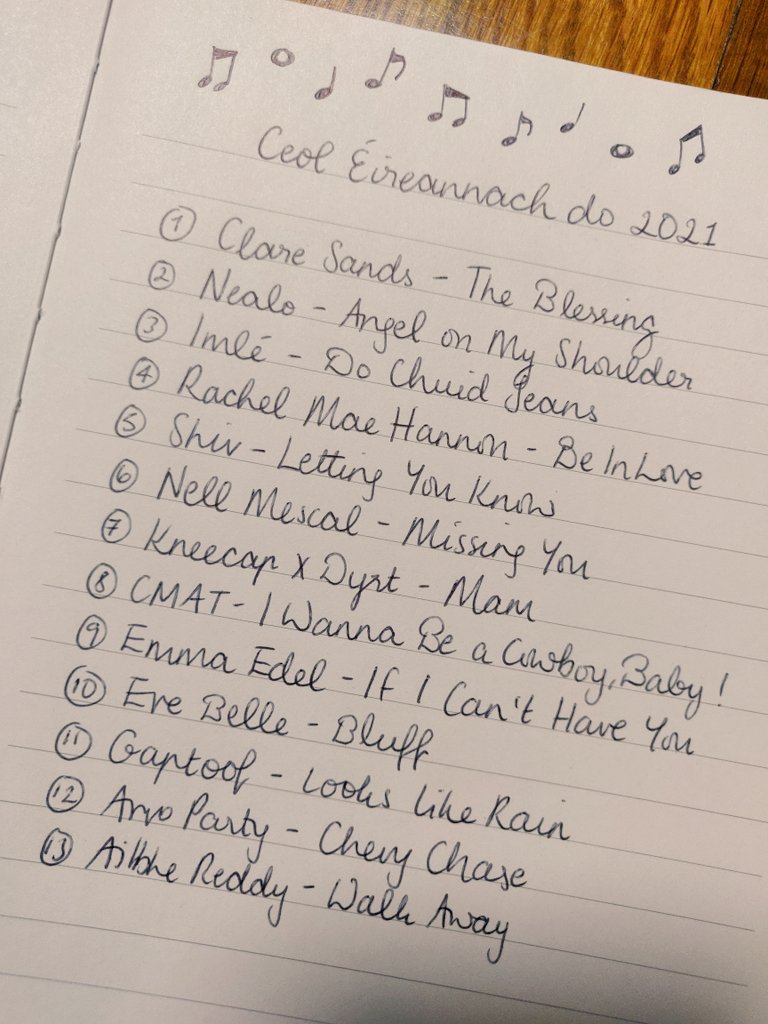 Ceol Éireannach do 2021
① Clare Sands - The Blessing
② Nealo - Angel on My Shoulder
③ Imlé - Do Chuid Jeans
④ Rachel Mae Hannon - Be In Love
⑤ Shiv - Letting You Know
⑥ Nell Mescal - Missing You
⑦ Kneecap X Dyrt - Mam
⑧ CMAT - I Wanna Be a Cowboy, Baby!
⑨ Emma Edel - If I Can't Have You
⑩ Eve Belle - Bluff
⑪ Gaptoof - Looks Like Rain
⑫ Arvo Party - Chevy Chase
⑬ Ailbhe Reddy - Walk Away